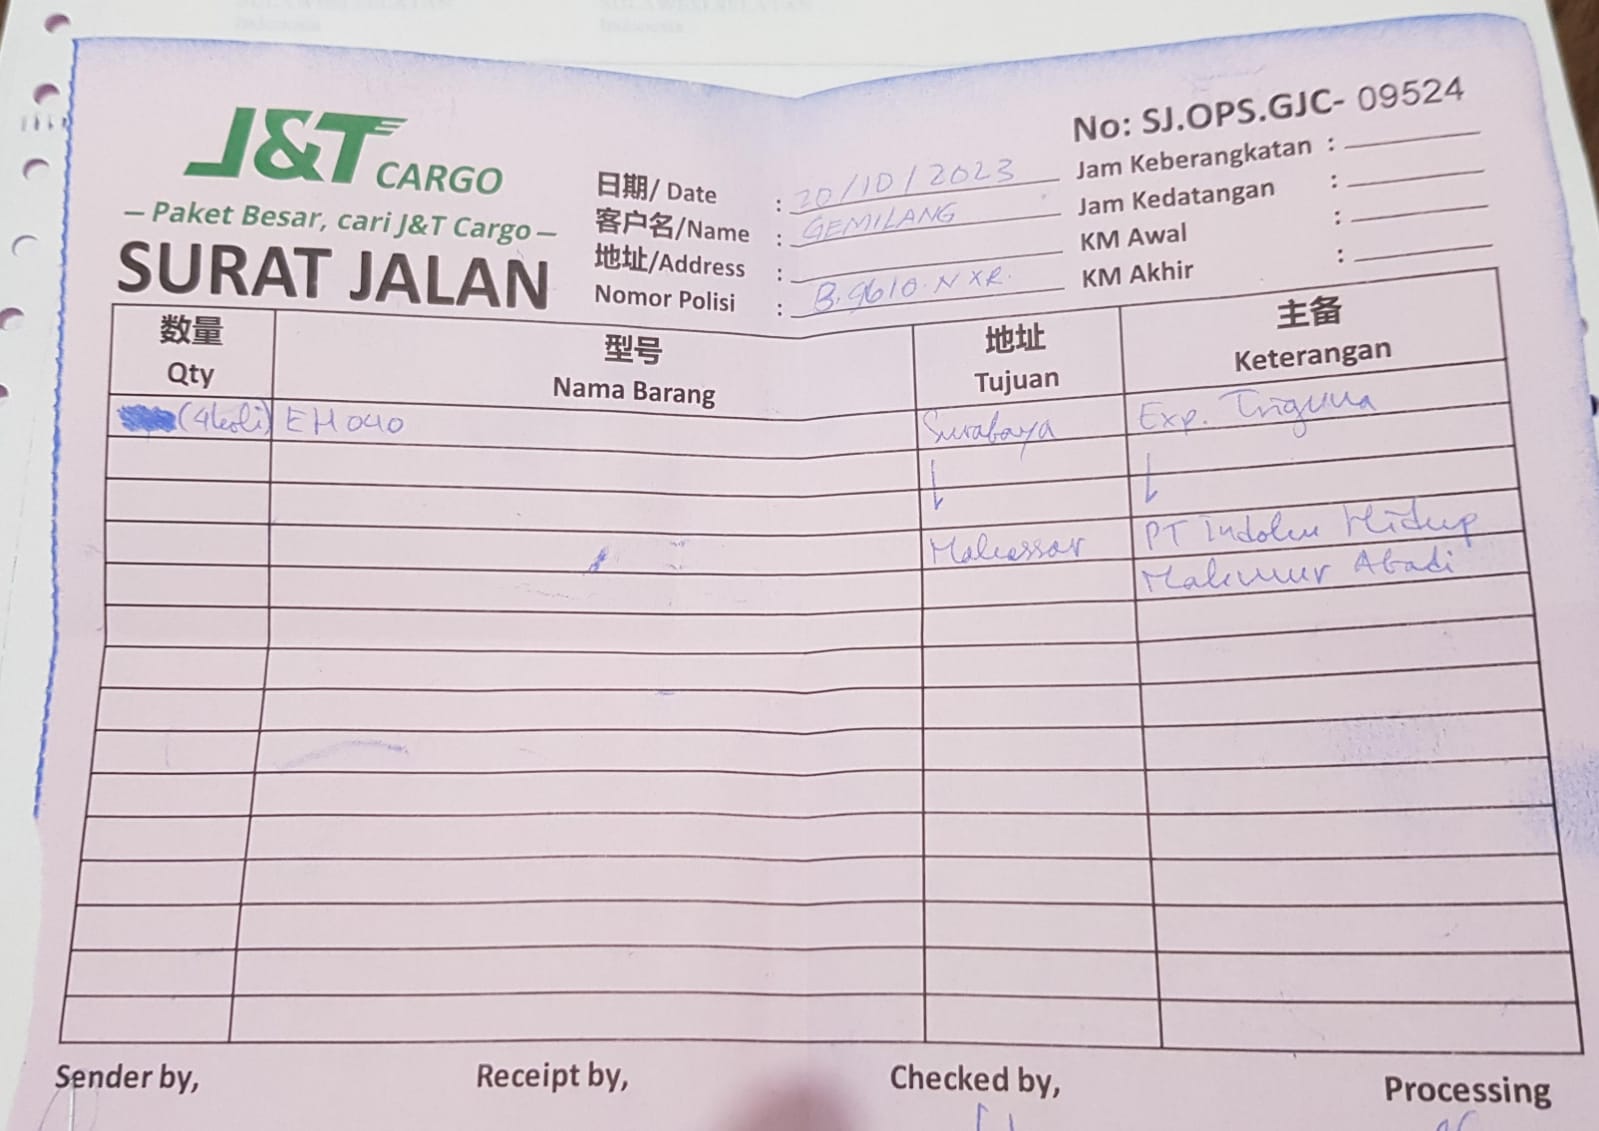 J&T CARGO
— Paket Besar, cari J&T Cargo —
SURAT JALAN
日期/ Date : 20/10/2023
客户名/Name : GEMILANG
地址/Address :
Nomor Polisi : B.9610.NXR.
No: SJ.OPS.GJC- 09524
Jam Keberangkatan :
Jam Kedatangan :
KM Awal :
KM Akhir :
数量 型号 地址 主备
Qty Nama Barang Tujuan Keterangan
(4koli) EH040 Surabaya Exp. Triguna
↓ ↓
Makassar PT Indoku Hidup
Makmur Abadi
Sender by, Receipt by, Checked by, Processing